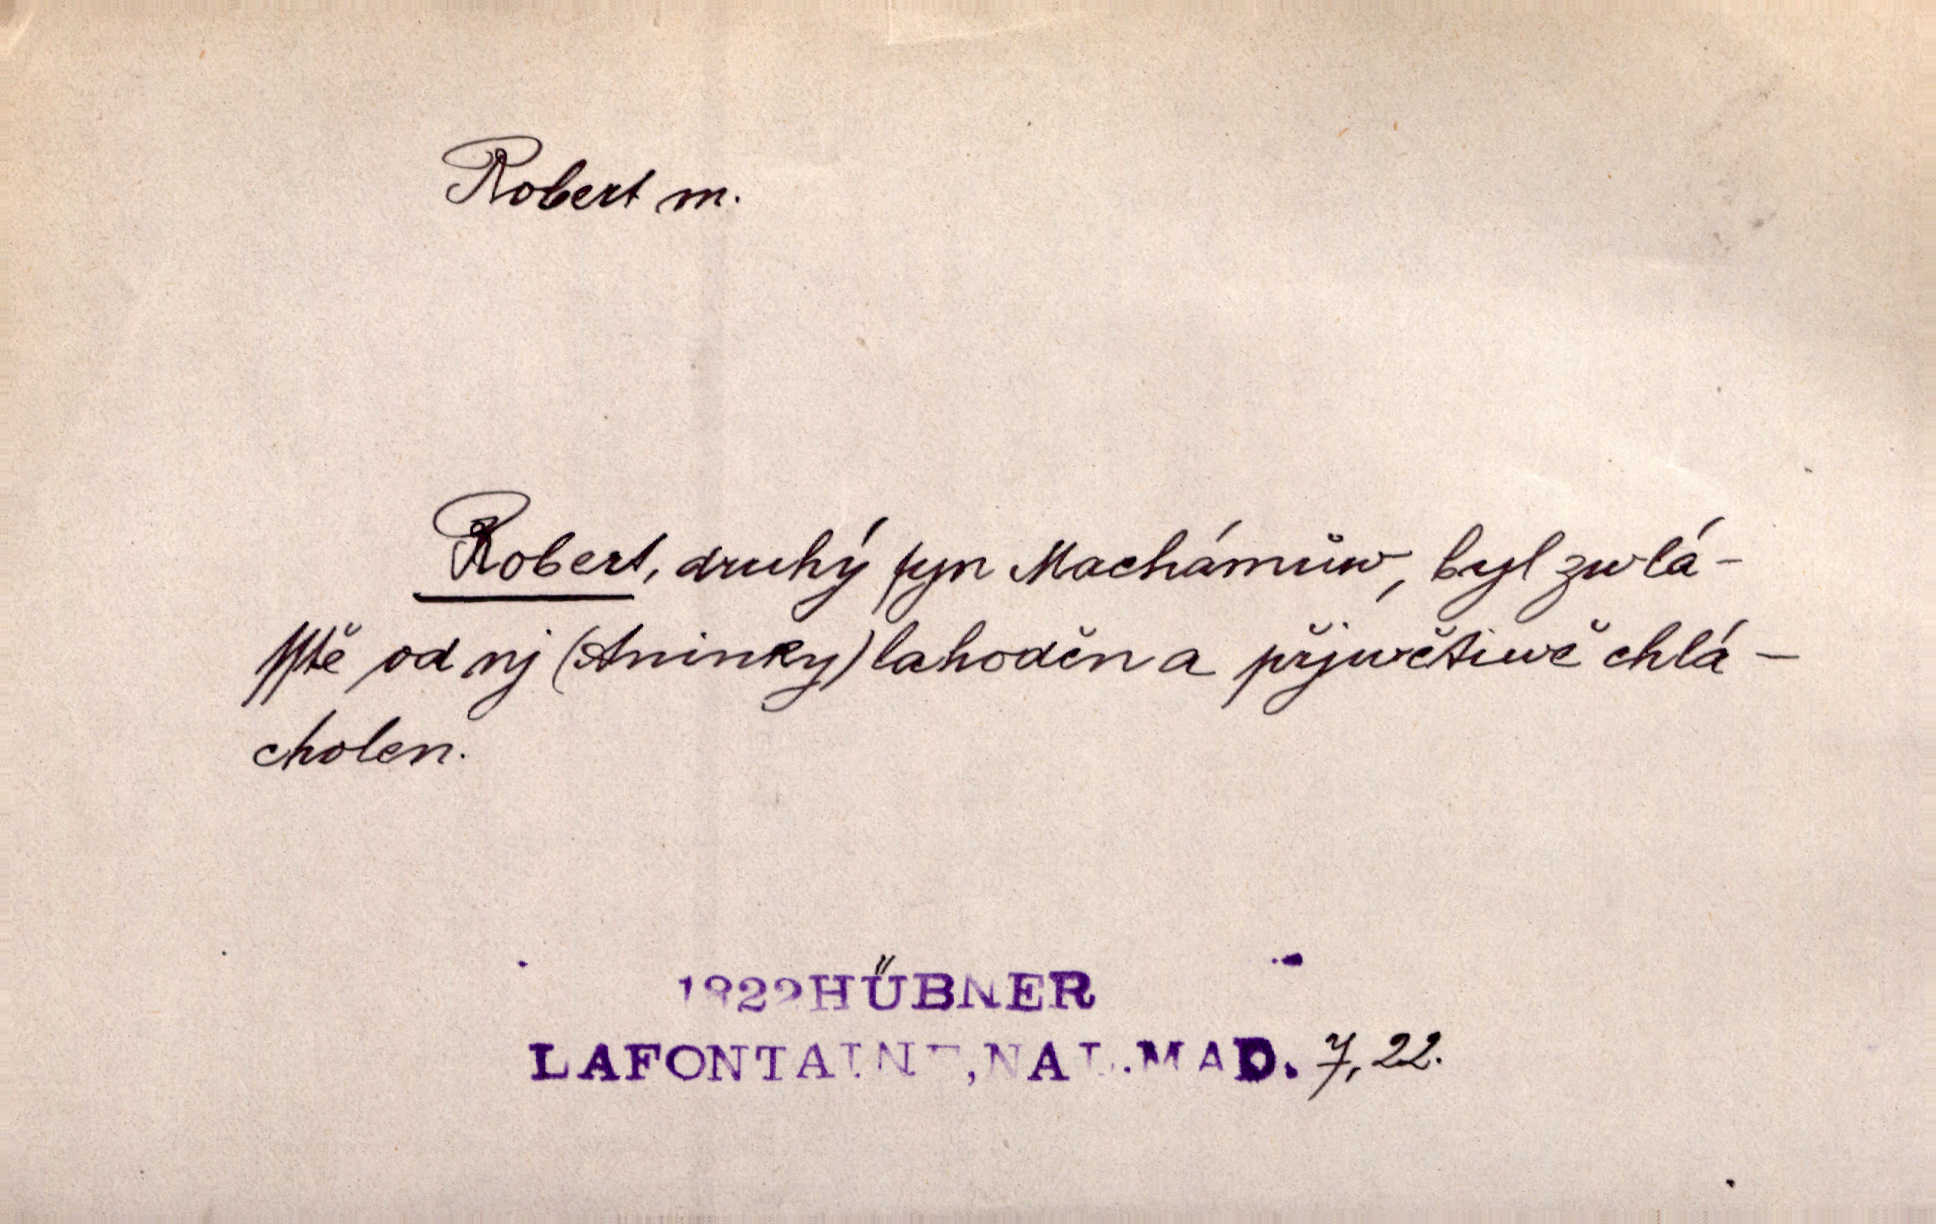 Robert m.
Robert, druhý ſyn Machámůw, byl zwlá-
ſſtě od nj (Aninky) lahoděn a přjwětiwě chlá-
cholen.
1822 HÜBNER
LAFONTAINE, NAL. MAD. 7, 22.